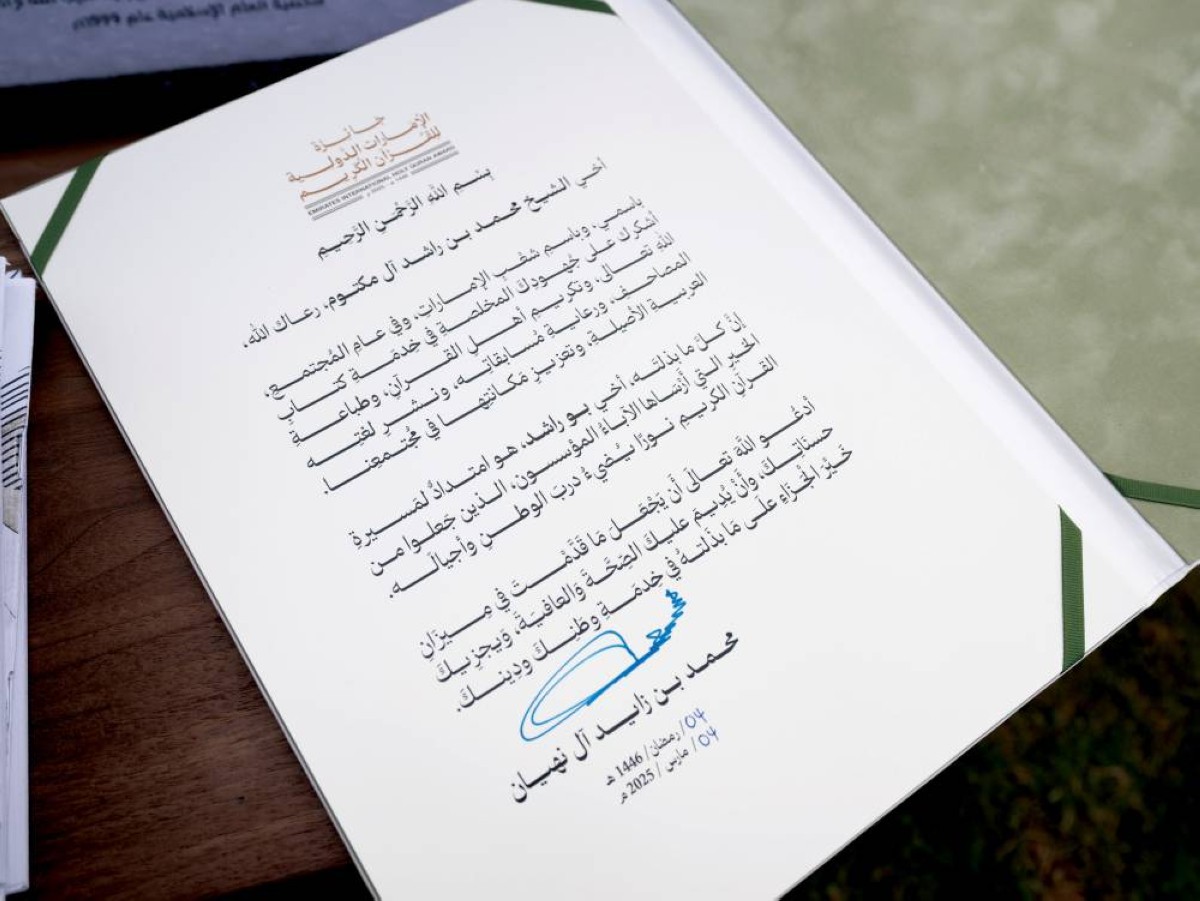 الإسلامية عام 1999م
جائزة
الإمارات الدولية
للقرآن الكريم
EMIRATES INTERNATIONAL HOLY QURAN AWARD
بِسْمِ اللهِ الرَّحْمٰنِ الرَّحِيمِ
أخي الشيخ محمد بن راشد آل مكتوم، رعاك الله،
باسمي، وباسمِ شعْبِ الإماراتِ، وفي عام المُجتمع،
أشكرك على جُهودِكَ المخلصةِ في خِدمَةِ كتابِ
الله تعالى، وتكريمِ أهلِ القرآنِ، وطباعةِ
المصاحف، ورعايةِ مُسابقاتِه، ونشرِ لغتِه
العربية الأصيلة، وتعزيزِ مَكانتِها في مُجتمعِنا.
إنَّ كلَّ ما بذلتَه، أخي بو راشد، هو امتدادٌ لمَسيرةِ
الخيرِ التي أرساها الآباءُ المؤسسون، الذين جَعلوا من
القرآن الكريمِ نورًا يُضيءُ دربَ الوطنِ وأجيالَه.
أدعُو اللهَ تعالَى أَن يَجْعَل مَا قَدَّمْتَ في مِيزَانِ
حسنَاتِكَ، وَأَنْ يُدِيمَ عليكَ الصِّحَّةَ وَالعافيَةَ، وَيجزِيكَ
خَيْرَ الجَزاءِ علَى مَا بذَلتهُ فِي خِدمَةِ وطَنِكَ ودِينكَ.
محمد بن زايد آل نهيان
04/ رمضان / 1446 هـ
04/ مارس / 2025 م